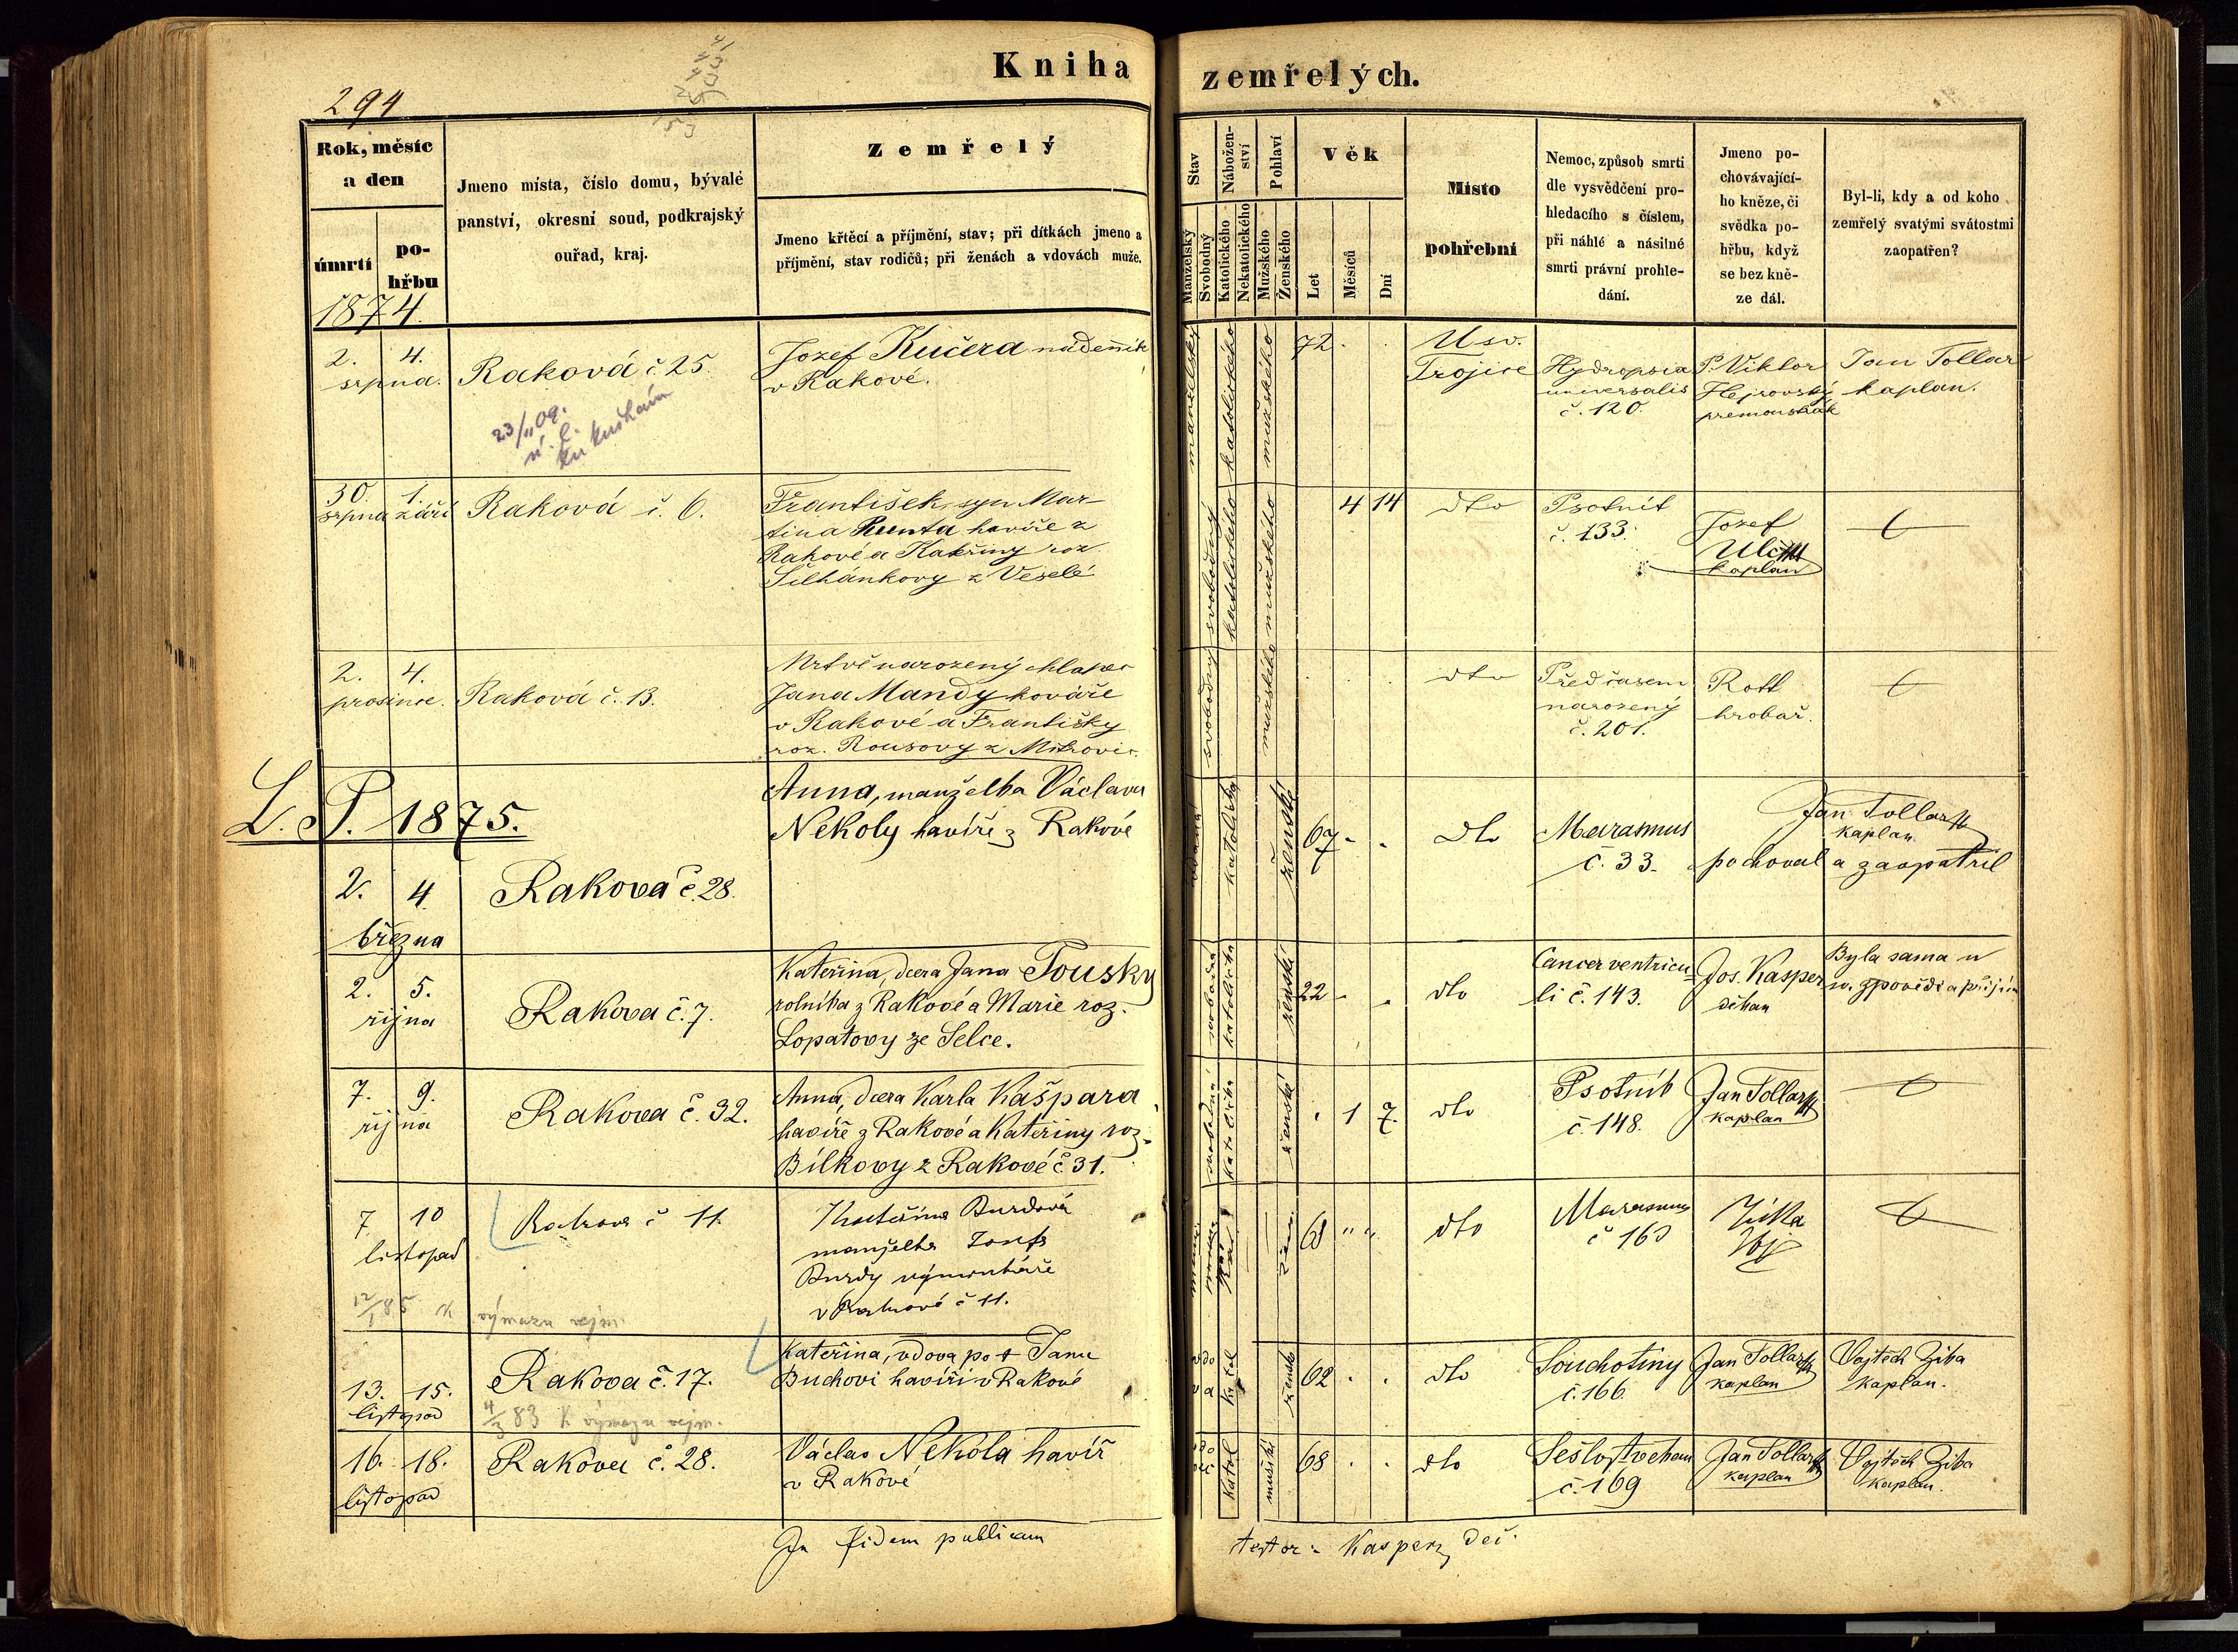 Kniha zemřelých.
294
Rok, měsíc a den
úmrtí
pohřbu
Jmeno místa, číslo domu, bývalé
panství, okresní soud, podkrajský
ouřad, kraj.
Zemřelý
Jmeno křtěcí a příjmění, stav; při dítkách jmeno a
příjmění, stav rodičů; při ženách a vdovách muže.
Stav
Manželský
Svobodný
Nábožen-
ství
Katolického
Nekatolického
Pohlaví
Mužského
Ženského
Věk
Let
Měsíců
Dní
Místo
pohřební
Nemoc, způsob smrti
dle vysvědčení pro-
hledacího s číslem,
při náhlé a násilné
smrti právní prohle-
dání.
Jmeno po-
chovávající-
ho kněze, či
svědka po-
hřbu, když
se bez kně-
ze dál.
Byl-li, kdy a od koho
zemřelý svatými svátostmi
zaopatřen?
1874.
2. 4.
srpna.
Raková č 25.
23/11 09.
Jozef Kučera nádenník
v Rakové.
manželský
katolického
mužského
72 . .
U sv.
Trojice
Hydropsia
universalis
č. 120.
P. Viktor
Hejrovský
premonstrát
Jan Tollar
kaplan.
30. 1.
srpna září
Raková č. 6.
František, syn Mar-
tina Kunta havíře z
Rakové a Kateřiny roz.
Šilhánkovy z Veselé
svobodný
katolického
mužského
4 14
dto
Psotník
č. 133.
Jozef
Ulč
kaplan
2. 4.
prosince.
Raková č. 13.
Mrtvě narozený chlapec
Jana Mandy kováře
v Rakové a Františky
roz. Rousovy z Mitrovic.
svobodný
mužského
. . .
dto
Předčasem
narozený
č. 201.
Rott
hrobař.
L. P. 1875.
2. 4.
března
Raková č. 28.
Anna, manželka Václava
Nekoly havíře z Rakové
katolická
ženské
67 . .
dto
Marasmus
č. 33.
Jan Tollar
kaplan
pochoval a zaopatřil
2. 5.
října
Raková č. 7.
Kateřina, dcera Jana Tousky
rolníka z Rakové a Marie roz.
Lopatovy ze Selce.
svobodná
katolická
ženské
22 . .
dto
Cancer ventricu-
li č. 143.
Jos. Kasper
děkan
Byla sama u
sv. zpovědi a přijím
7. 9.
října
Raková č. 32.
Anna, dcera Karla Kašpara
havíře z Rakové a Kateřiny roz.
Bílkovy z Rakové č 31.
svobodná
katolická
ženské
. 1 7.
dto
Psotník
č. 148.
Jan Tollar
kaplan
7 10
listopad
Raková č 11.
Kateřina Burdová
manželka Josefa
Burdy výminkáře
v Rakové č 11.
68 " "
dto
Marasmus
č 163
12/1 85 k výmazu vejm.
13. 15.
listopad
Raková č. 17.
4/3 83 k výmazu vejm.
Kateřina, vdova po † Janu
Buchovi havíři v Rakové
vdova
katol
ženské
62 . .
dto
Souchotiny
č. 166.
Jan Tollar
kaplan
Vojtěch Ziba
kaplan.
16. 18.
listopad
Raková č. 28.
Václav Nekola havíř
v Rakové
katol
mužské
68 . .
dto
Sešlost věkem
č. 169
Jan Tollar
kaplan
Vojtěch Ziba
kaplan.
In fidem publicam
testor: Kasper, děk.